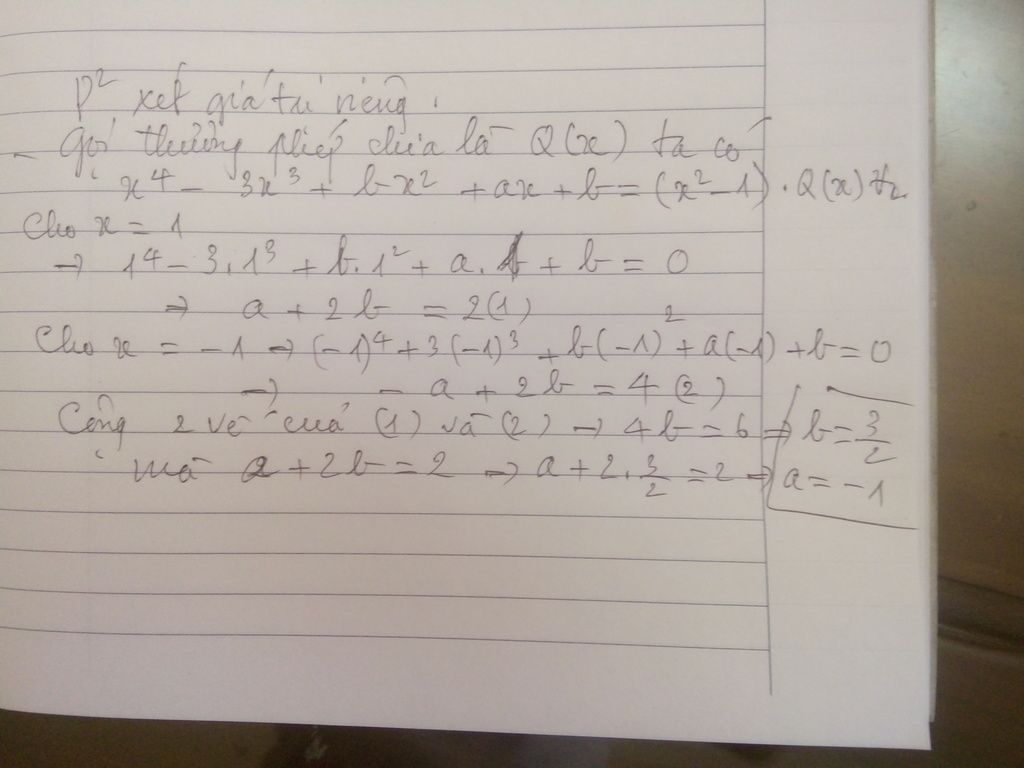 P² xét giá trị riêng.
- Gọi thương phép chia là Q(x) ta có
x⁴ - 3x³ + bx² + ax + b = (x² - 1) . Q(x)
Cho x = 1
→ 1⁴ - 3.1³ + b.1² + a.1 + b = 0
⇒ a + 2b = 2(1)
Cho x = -1 → (-1)⁴ + 3(-1)³ + b(-1)² + a(-1) + b = 0
→ - a + 2b = 4 (2)
Cộng 2 vế của (1) và (2) → 4b = 6 ⇒ b = 3/2
mà a + 2b = 2 → a + 2. 3/2 = 2 → a = -1